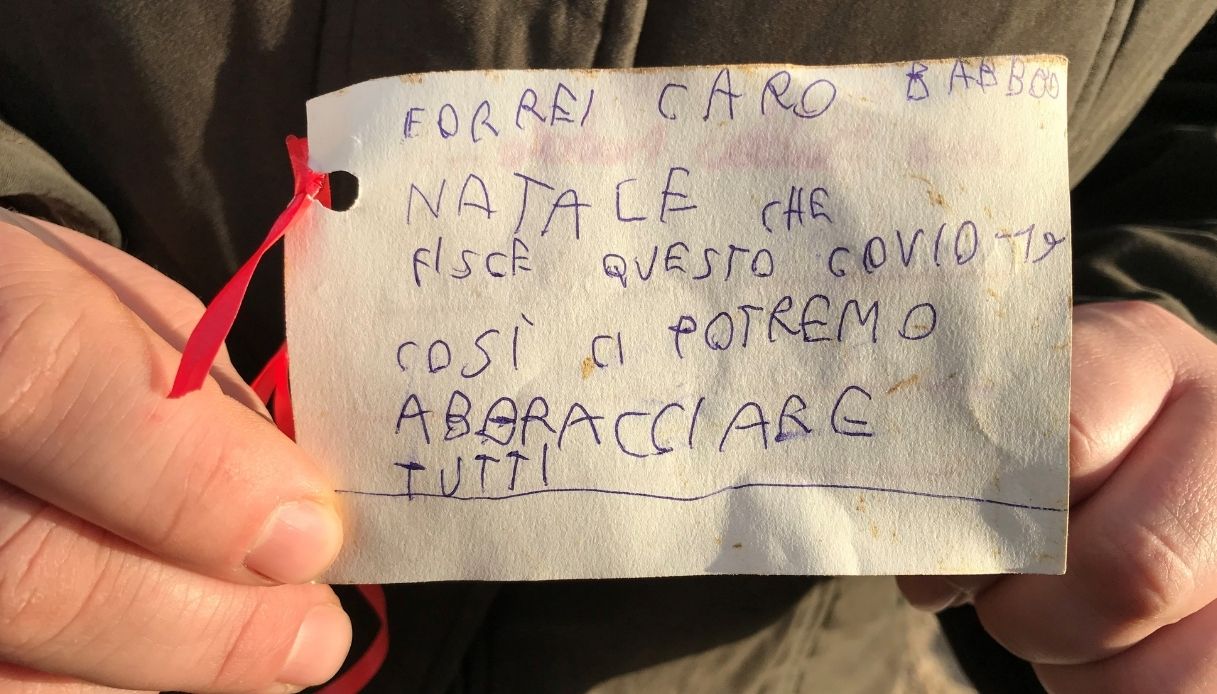 FORREI CARO BABBO
NATALE CHE
FISCE QUESTO COVID-19
COSÌ CI POTREMO
ABBRACCIARE
TUTTI